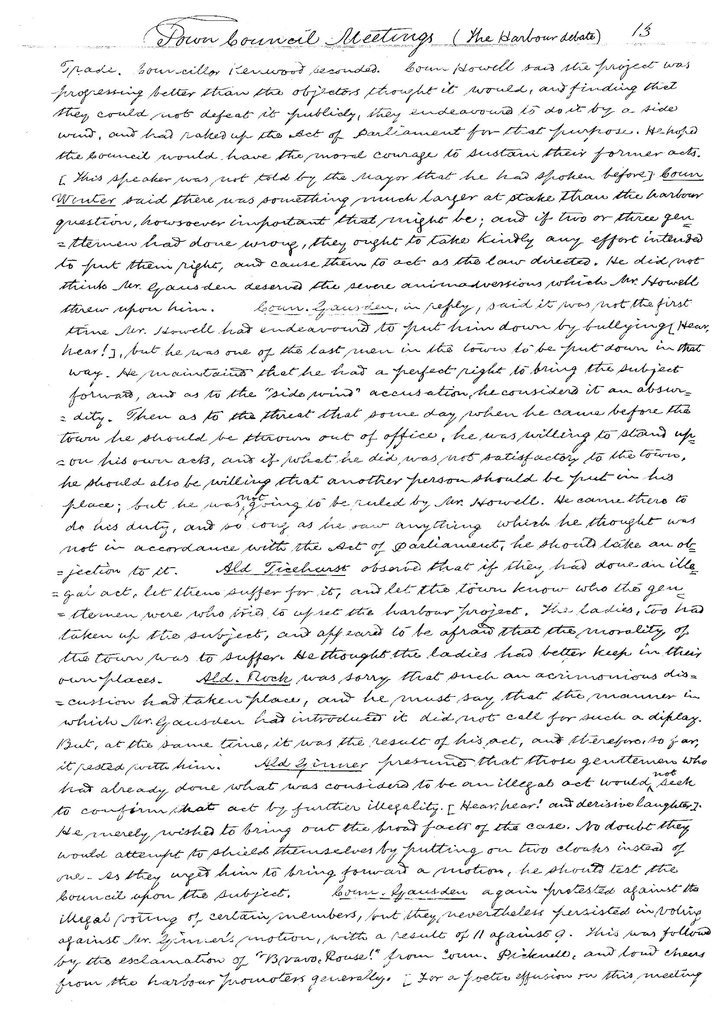 Town Council Meetings (The Harbour debate) 13
Trade. Councillor Kenwood seconded. Coun Howell said the project was
progressing better than the objectors thought it would, and finding that
they could not defeat it publicly, they endeavoured to do it by a side
wind, and had raked up the Act of Parliament for that purpose. He hoped
the Council would have the moral courage to sustain their former acts.
[This speaker was not told by the Mayor that he had spoken before] Coun
Winter said there was something much larger at stake than the harbour
question, howsoever important that might be; and if two or three gen=
=tlemen had done wrong, they ought to take kindly any effort intended
to put them right, and cause them to act as the law directed. He did not
think Mr. Gausden deserved the severe animadversions which Mr. Howell
threw upon him. Coun. Gausden, in reply, said it was not the first
time Mr. Howell had endeavoured to put him down by bullying [Hear,
hear!], but he was one of the last men in the town to be put down in that
way. He maintained that he had a perfect right to bring the subject
forward, and as to the "side wind" accusation, he considered it an absur=
=dity. Then as to the threat that some day when he came before the
town he should be thrown out of office, he was willing to stand up=
=on his own acts, and if what he did was not satisfactory to the town,
he should also be willing that another person should be put in his
place; but he was not going to be ruled by Mr. Howell. He came there to
do his duty, and so long as he saw anything which he thought was
not in accordance with the Act of Parliament, he should take an ob=
=jection to it. Ald Ticehurst observed that if they had done an ille=
=gal act, let them suffer for it, and let the town know who the gen=
=tlemen were who tried to upset the harbour project. The ladies, too had
taken up the subject, and appeared to be afraid that the morality of
the town was to suffer. He thought the ladies had better keep in their
own places. Ald. Rock was sorry that such an acrimonious dis=
=cussion had taken place, and he must say that the manner in
which Mr. Gausden had introduced it did not call for such a display.
But, at the same time, it was the result of his act, and therefore, so far,
it rested with him. Ald Ginner presumed that those gentlemen who
had already done what was considered to be an illegal act would not seek
to confirm that act by further illegality. [Hear, hear! and derisive laughter].
He merely wished to bring out the broad facts of the case. No doubt they
would attempt to shield themselves by putting on two cloaks instead of
one. As they urged him to bring forward a motion, he should test the
Council upon the subject. Coun. Gausden again protested against the
illegal voting of certain members, but they, nevertheless persisted in voting
against Mr. Ginner's motion, with a result of 11 against 9. This was followed
by the exclamation of "Bravo, Rouse!" from Coun. Picknell, and loud cheers
from the harbour promoters generally. [For a poetic effusion on this meeting